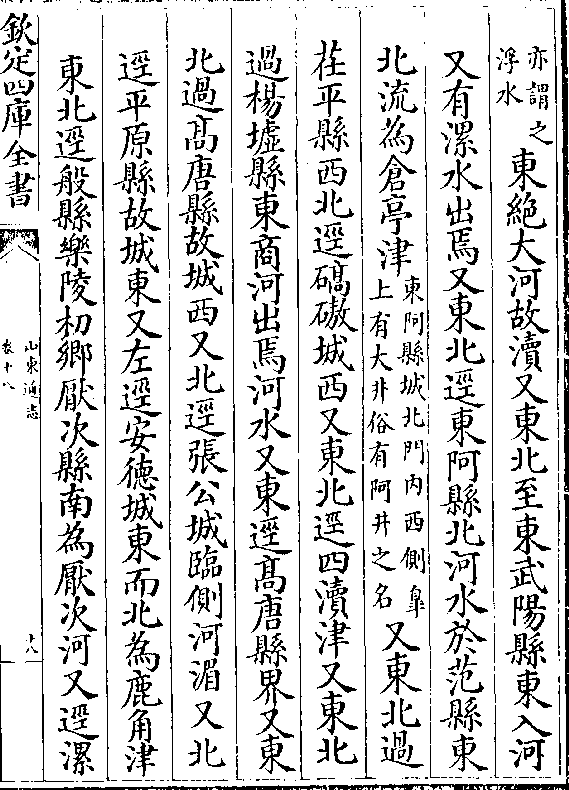 亦謂之
浮水
東絶大河故瀆又東北至東武陽縣東入河
又有漯水出焉又東北逕東阿縣北河水於范縣東
北流為倉亭津
東阿縣城北門内西側臯
上有大非俗有阿井之名
又東北過
茌平縣西北逕碻磝城西又東北逕四瀆津又東北
過楊墟縣東商河出焉河水又東逕髙唐縣界又東
北過髙唐縣故城西又北逕張公城臨側河湄又北
逕平原縣故城東又左逕安德城東而北為鹿角津
東北逕般縣樂陵朸鄉厭次縣南為厭次河又逕漯
欽定四庫全書
山東通志
卷十八
十八